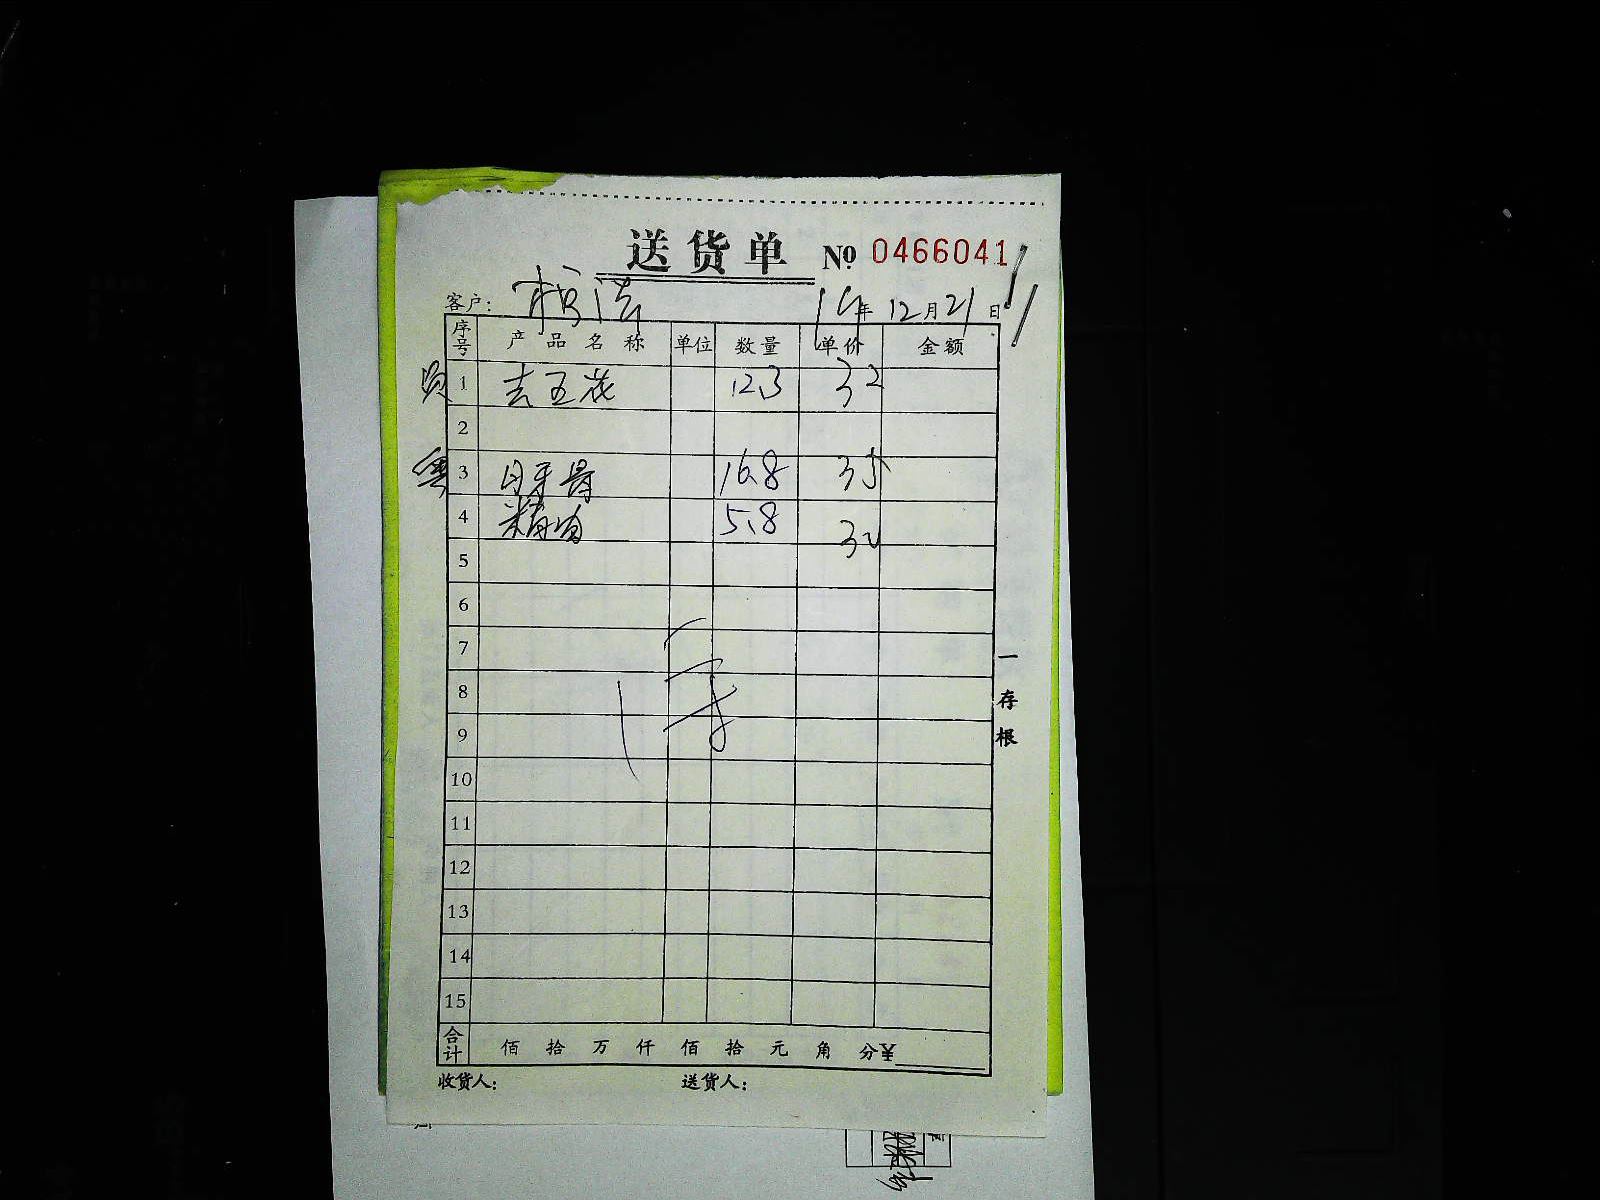 送货单 № 0466041
客户: 年 12月21日
序号 产品名称 单位 数量 单价 金额
1 去五花 12.3 32
2
3 月牙骨 16.8 35
4 精肉 5.8 32
5
6
7
8
9
10
11
12
13
14
15
合计 佰 拾 万 仟 佰 拾 元 角 分¥
收货人: 送货人:
一存根